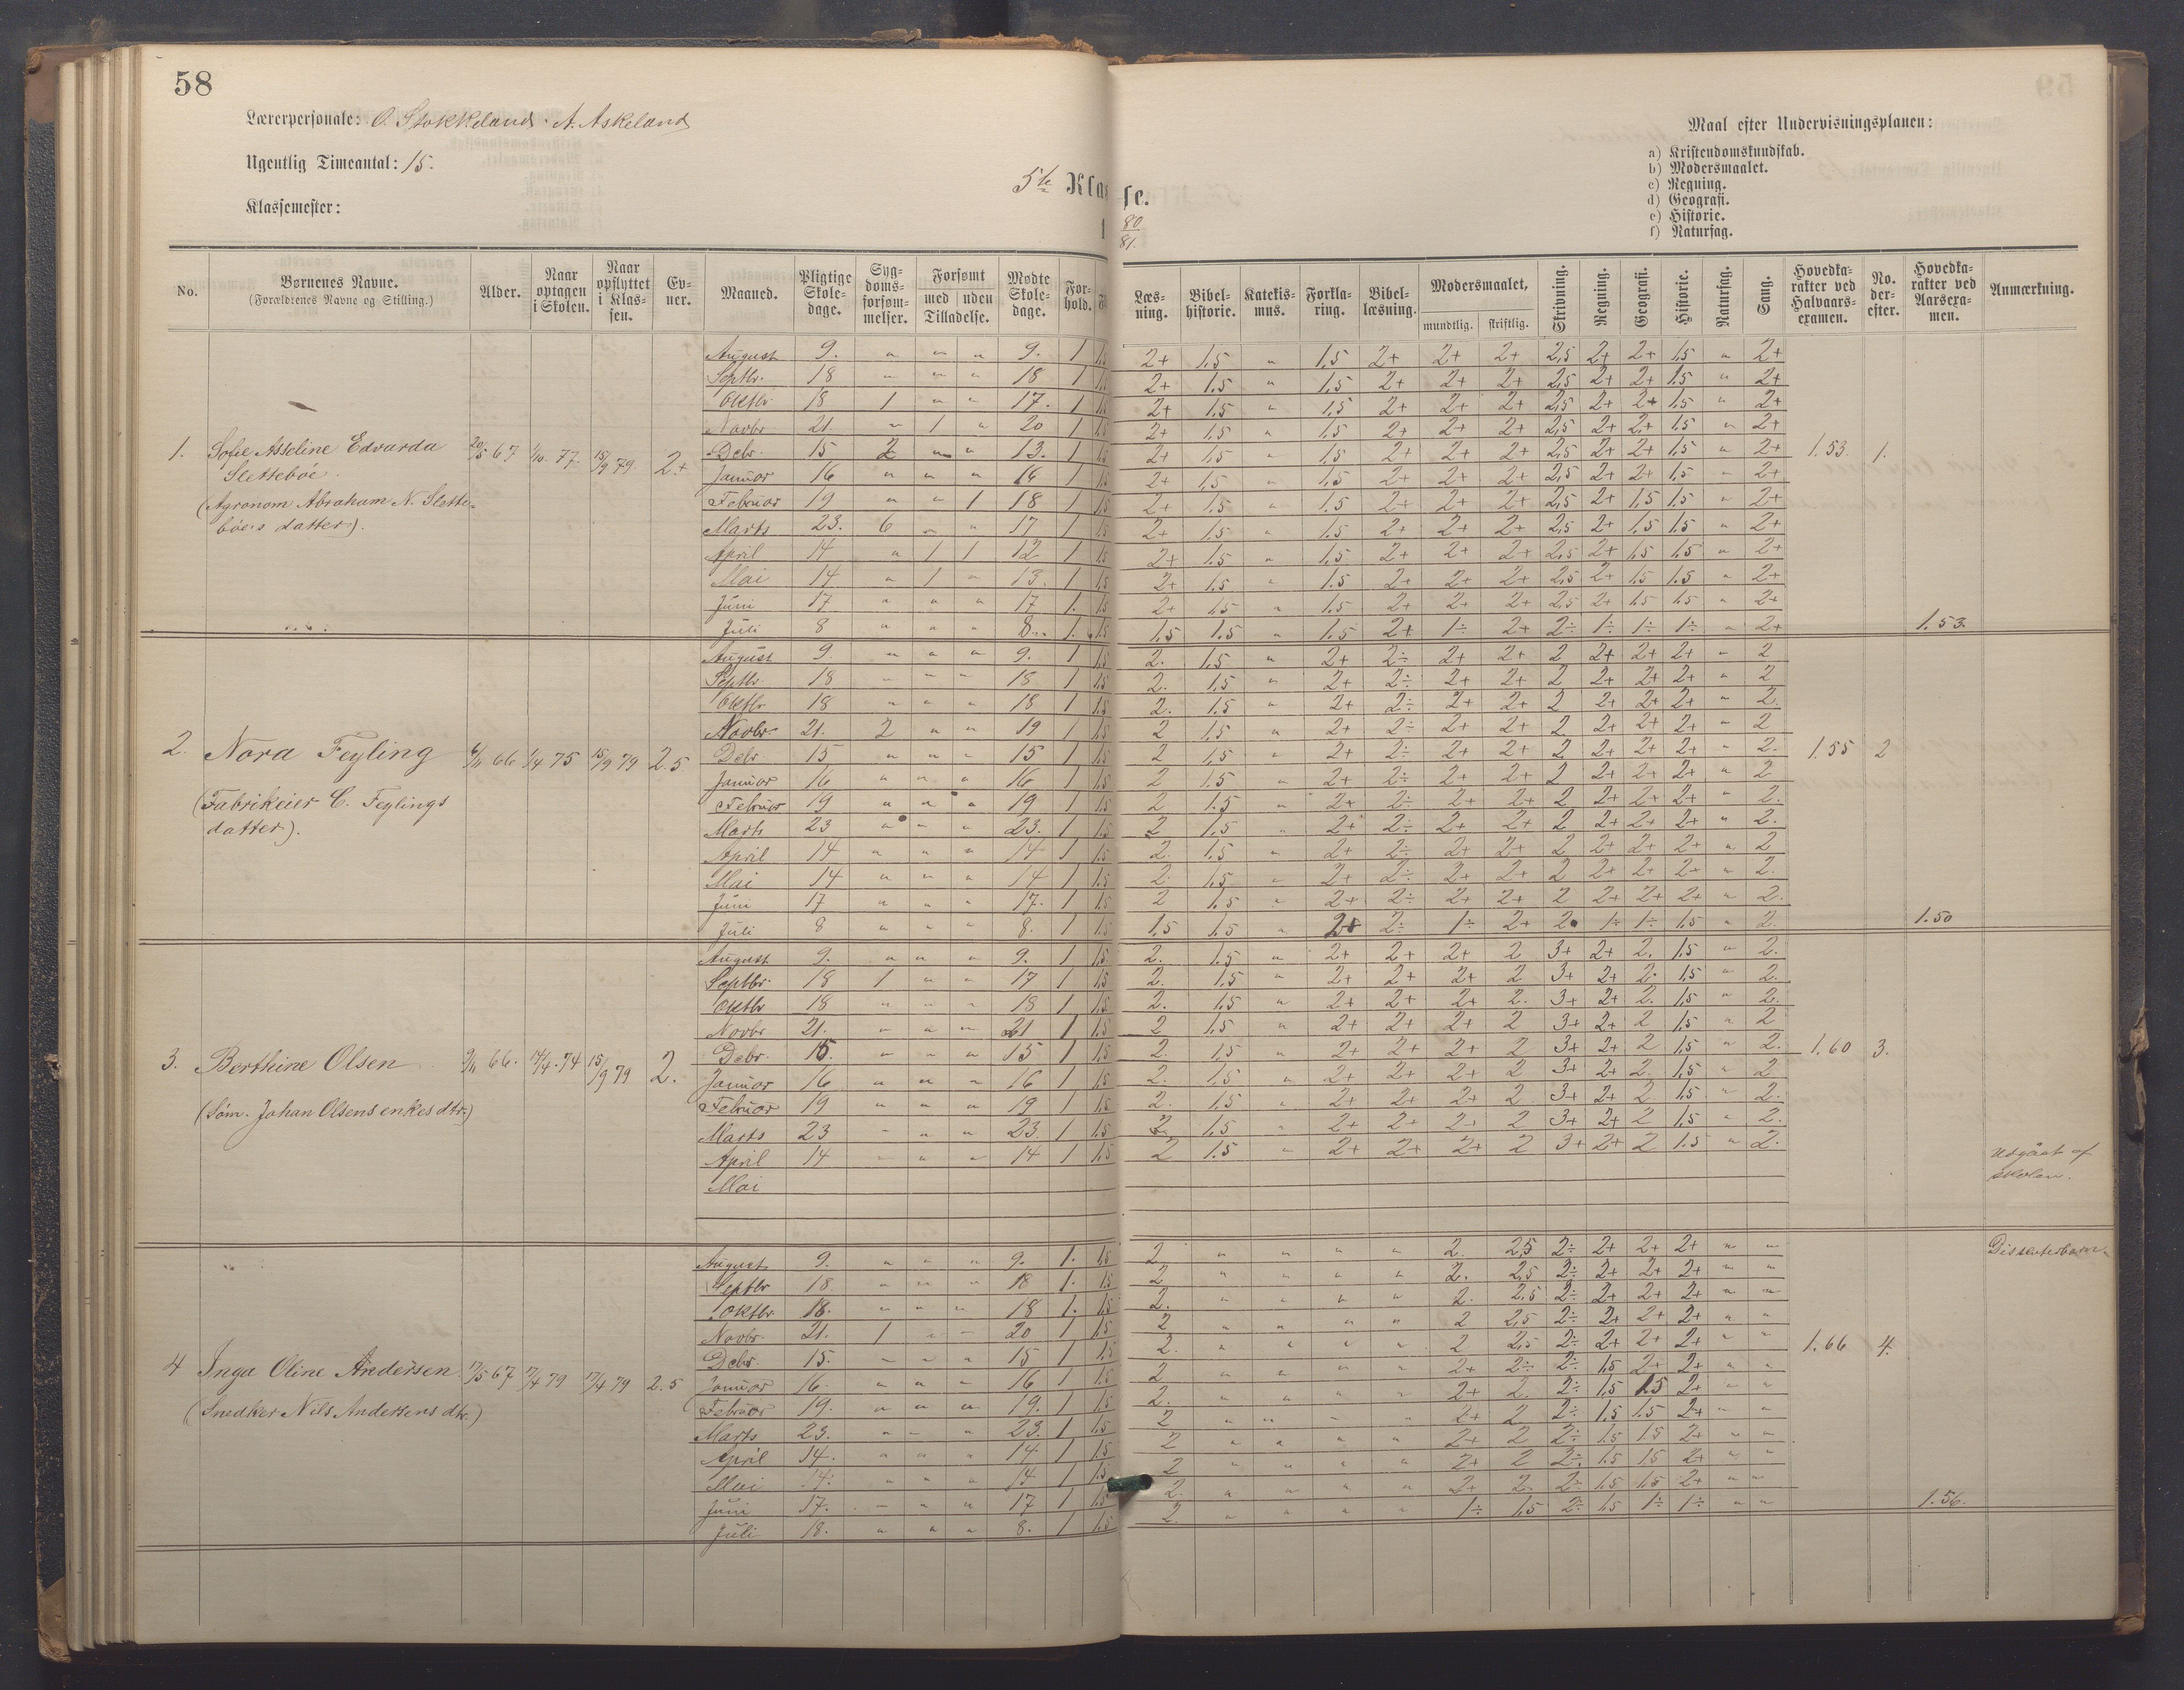 58
Lærerpersonale: O. Stokkeland. A. Askeland
Ugentlig Timeantal: 15.
Klassemester:
5te Klasse.
80
81.
Maal efter Undervisningsplanen:
a) Kristendomskundskab.
b) Modersmaalet.
c) Regning.
d) Geografi.
e) Historie.
f) Naturfag.
No. Børnenes Navne. (Forældrenes Navne og Stilling.) Alder. Naar optagen i Skolen. Naar opflyttet i Klassen. Evner. Maaned. Pligtige Skoledage. Sygdomsforsømmelser. Forsømt med uden Tilladelse. Mødte Skoledage. Forhold. Læsning. Bibelhistorie. Katekismus. Forklaring. Bibellæsning. Modersmaalet, mundtlig. skriftlig. Skrivning. Regning. Geografi. Historie. Naturfag. Sang. Hovedkarakter ved Halvaarsexamen. No. derefter. Hovedkarakter ved Aarsexamen. Anmærkning.
1. Sofie Asseline Edvarda Slettebøe (Agronom Abraham N. Slettebøe's datter). 20/5 67 1/10. 77. 15/9 79. 2+ 1.53. 1. 1.53.
August 9. " " " 9. 1 1,5 2+ 1,5 " 1,5 2+ 2+ 2+ 2,5 2+ 2+ 1,5 " 2+
Septbr. 18 " " " 18 1 1,5 2+ 1,5 " 1,5 2+ 2+ 2+ 2,5 2+ 2+ 1,5 " 2+
Oktbr 18 1 " " 17. 1 1,5 2+ 1,5 " 1,5 2+ 2+ 2+ 2,5 2+ 2+ 1,5 " 2+
Novbr 21. " 1 " 20 1 1,5 2+ 1,5 " 1,5 2+ 2+ 2+ 2,5 2+ 2+ 1,5 " 2+
Debr. 15 2 " " 13. 1 1,5 2+ 1,5 " 1,5 2+ 2+ 2+ 2,5 2+ 2+ 1,5 " 2+
Januar 16 " " " 16 1 1,5 2+ 1,5 " 1,5 2+ 2+ 2+ 2,5 2+ 2+ 1,5 " 2+
Februar 19 " " 1 18 1 1,5 2+ 1,5 " 1,5 2+ 2+ 2+ 2,5 2+ 1,5 1,5 " 2+
Marts 23. 6 " " 17 1 1,5 2+ 1,5 " 1,5 2+ 2+ 2+ 2,5 2+ 1,5 1,5 " 2+
April 14 " 1 1 12 1 1,5 2+ 1,5 " 1,5 2+ 2+ 2+ 2,5 2+ 1,5 1,5 " 2+
Mai 14 " 1 " 13. 1 1,5 2+ 1,5 " 1,5 2+ 2+ 2+ 2,5 2+ 1,5 1,5 " 2+
Juni 17 " " " 17 1. 1,5 2+ 1,5 " 1,5 2+ 2+ 2+ 2,5 2+ 1,5 1,5 " 2+
Juli 8 " " " 8. 1. 1,5 1,5 1,5 " 1,5 2+ 1÷ 2+ 2÷ 1÷ 1÷ 1÷ " 2+
2. Nora Feyling (Fabrikeier C. Feylings datter). 6/11 66 1/4 75 15/9 79 2.5 1.55 2 1.50
August 9. " " " 9. 1 1,5 2. 1,5 " 2+ 2÷ 2+ 2+ 2 2+ 2+ 2+ " 2
Septbr. 18 " " " 18 1 1,5 2. 1,5 " 2+ 2÷ 2+ 2+ 2 2+ 2+ 2+ " 2
Oktbr 18 " " " 18 1 1,5 2. 1,5 " 2+ 2÷ 2+ 2+ 2 2+ 2+ 2+ " 2.
Novbr. 21. 2 " " 19 1 1,5 2 1,5 " 2+ 2÷ 2+ 2+ 2 2+ 2+ 2+ " 2
Debr 15 " " " 15 1 1,5 2 1,5 " 2+ 2÷ 2+ 2+ 2 2+ 2+ 2+ " 2.
Januar 16 " " " 16 1 1,5 2 1,5 " 2+ 2÷ 2+ 2+ 2 2+ 2+ 2+ " 2
Februar 19 " " " 19 1 1,5 2 1,5 " 2+ 2÷ 2+ 2+ 2 2+ 2+ 2+ " 2.
Marts 23 " " " 23. 1 1,5 2 1,5 " 2+ 2÷ 2+ 2+ 2 2+ 2+ 2+ " 2.
April 14 " " " 14 1 1,5 2. 1,5 " 2+ 2÷ 2+ 2+ 2 2+ 2+ 2+ " 2
Mai 14 " " " 14 1 1,5 2. 1,5 " 2+ 2÷ 2+ 2+ 2 2+ 2+ 2+ " 2.
Juni 17 " " " 17. 1 1,5 2 1,5 " 2+ 2÷ 2+ 2+ 2 2+ 2+ 2+ " 2.
Juli 8 " " " 8. 1 1,5 1,5 1,5 " 2+ 2÷ 1÷ 2+ 2. 1÷ 1÷ 1,5 " 2.
3. Berthine Olsen (Søm. Johan Olsens enkes dtr.) 9/11 66. 17/4. 74 15/9 79 2. 1.60 3. Udgået af skolen.
August 9. " " " 9. 1 1,5 2. 1,5 " 2+ 2+ 2+ 2 3+ 2+ 2. 1,5 " 2.
Septbr. 18 1 " " 17 1 1,5 2. 1,5 " 2+ 2+ 2+ 2 3+ 2+ 2. 1,5 " 2.
Oktbr 18 " " " 18 1 1,5 2. 1,5 " 2+ 2+ 2+ 2. 3+ 2+ 2. 1,5 " 2.
Novbr 21. " " " 21 1 1,5 2 1,5 " 2+ 2+ 2+ 2 3+ 2+ 2 1,5 " 2
Debr. 15. " " " 15 1 1,5 2. 1,5 " 2+ 2+ 2+ 2 3+ 2+ 2 1,5 " 2.
Januar 16 " " " 16 1 1,5 2. 1,5 " 2+ 2+ 2+ 2 3+ 2+ 2. 1,5 " 2
Februar 19 " " " 19 1 1,5 2. 1,5 " 2+ 2+ 2+ 2 3+ 2+ 2 1,5 " 2.
Marts 23 " " " 23. 1 1,5 2. 1,5 " 2+ 2+ 2+ 2 3+ 2+ 2 1,5 " 2.
April 14 " " " 14 1 1,5 2 1.5 " 2+ 2+ 2+ 2 3+ 2+ 2 1.5 " 2.
Mai
4 Inga Oline Andersen (Snedker Nils Andersens dtr.) 17/5 67 17/4 79 17/4 79 2.5 1.66 4. 1.56. Dissenterbarn.
August 9. " " " 9. 1. 1,5 2 " " " " 2. 2,5 2÷ 2+ 2+ 2+ " "
Septbr 18. " " " 18 1. 1,5 2 " " " " 2. 2,5 2÷ 2+ 2+ 2+ " "
Oktbr. 18. " " " 18 1. 1,5 2. " " " " 2. 2,5 2÷ 2+ 2+ 2+ " "
Novbr. 21. 1 " " 20 1 1,5 2 " " " " 2 2,5 2÷ 2+ 2+ 2+ " "
Debr. 15. " " " 15 1 1,5 2. " " " " 2 2,5 2÷ 2+ 2+ 2+ " "
Januar 16. " " " 16 1 1,5 2 " " " " 2+ 2÷ 2÷ 1,5 2+ 2+ " "
Februar 19. " " " 19. 1 1,5 2. " " " " 2+ 2. 2÷ 1,5 1,5 2+ " "
Marts 23. " " " 23. 1 1,5 2 " " " " 2+ 2 2÷ 1,5 1,5 2+ " "
April 14. " " " 14 1 1,5 2 " " " " 2+ 2 2÷ 1,5 1,5 2+ " "
Mai 14. " " " 14 1 1,5 2 " " " " 2+ 2 2÷ 1,5 1,5 2+ " "
Juni 17. " " " 17 1 1,5 2. " " " " 2+ 2. 2÷ 1,5 1,5 2+ " "
Juli 18. " " " 8. 1 1,5 2. " " " " 1÷ 1,5 2÷ 1,5 1÷ 1÷ " "